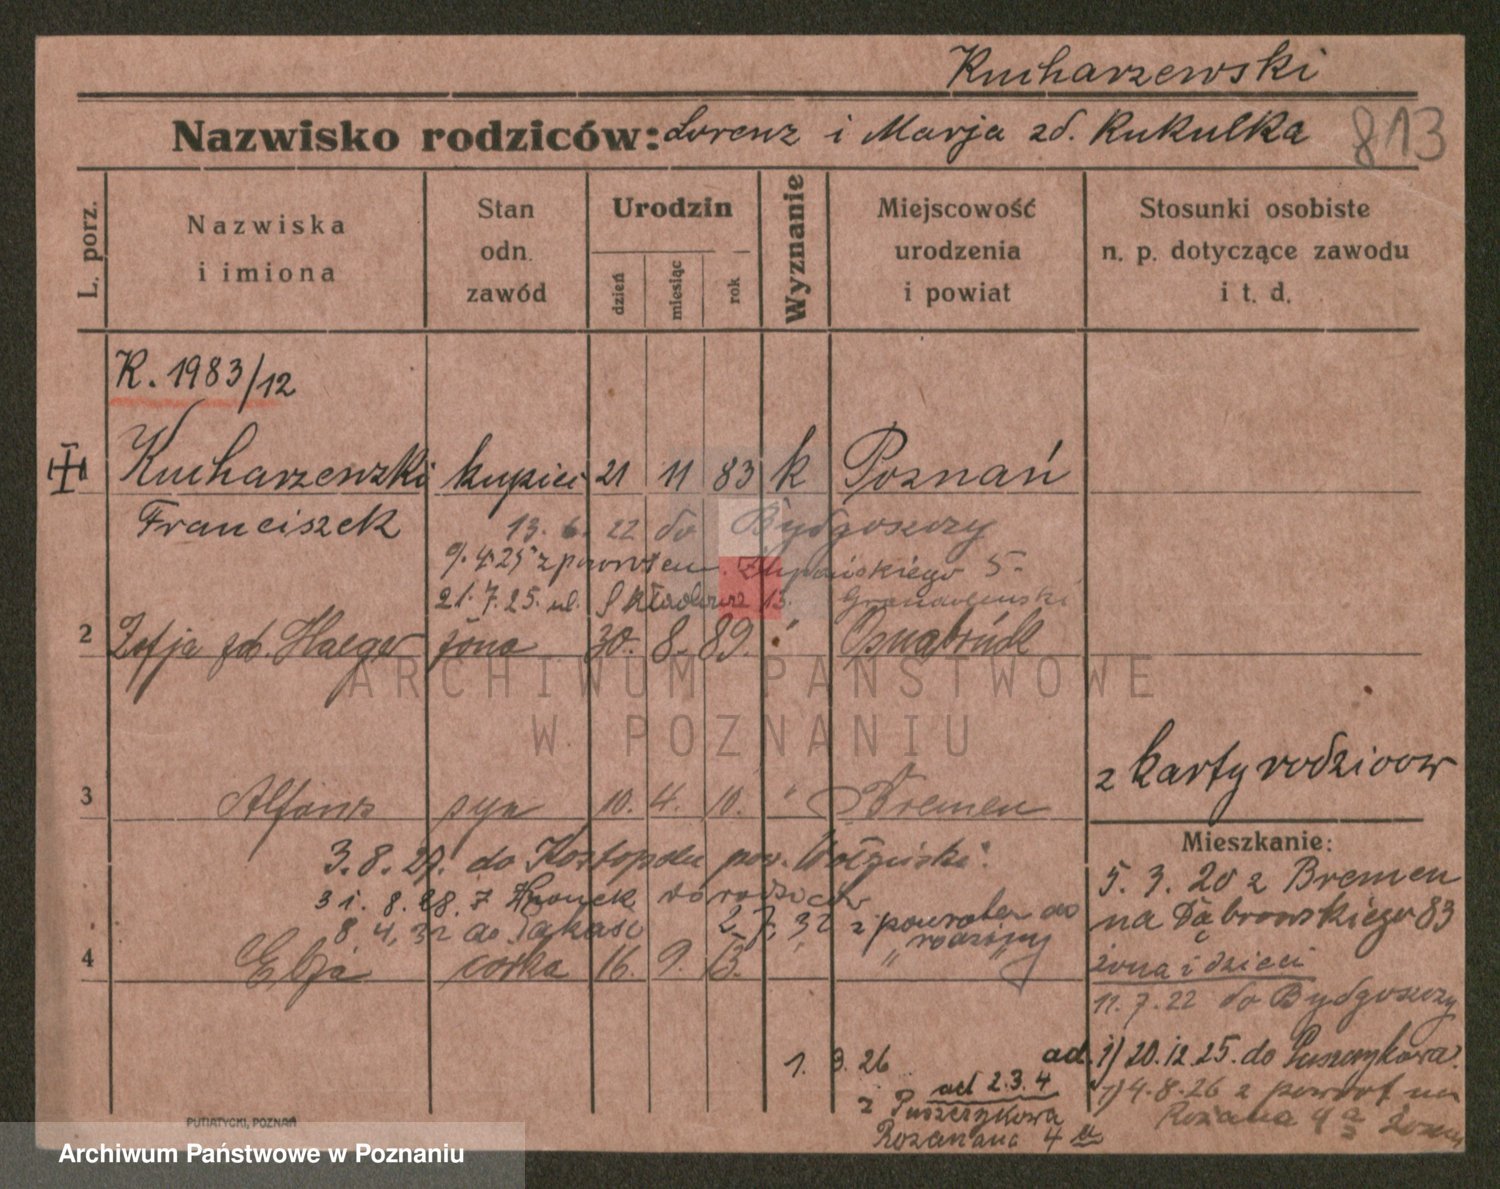 Kucharzewski
Nazwisko rodziców: Lorenz i Marja zd. Kukulka 813
L. porz.
Nazwiska
i imiona
Stan
odn.
zawód
Urodzin
dzień
miesiąc
rok
Wyznanie
Miejscowość
urodzenia
i powiat
Stosunki osobiste
n. p. dotyczące zawodu
i t. d.
K. 1983/12
Kucharzewski kupiec 21 11 83 k Poznań
Franciszek 13. 6. 22 do Bydgoszczy
9. 4. 25 z powrotem 5
21. 7. 25. ul. Składowa 13.
2 Zofja zd. Haeger żona 30. 8. 89. " Osnabrück
ARCHIWUM PAŃSTWOWE
W POZNANIU
z karty rodziców
3 Alfons syn 10. 4. 10. " Bremen
Mieszkanie:
3. 8. 27. do Kostopola pow. Wołyński
31. 8. 28. z do rodziców
8 4, 32 do 2 7, 32 z powrotem do
rodziny
4 Elza córka 16. 9. 13. " "
5. 3. 20 z Bremen
na Dąbrowskiego 83
żona i dzieci
11. 7. 22 do Bydgoszczy
ad. 1) 20. 12. 25. do Puszczykowa
1) 4. 8. 26 z powrot na
Różana 4a
1. 9. 26
ad 2. 3. 4
z Puszczykowa
Różana 4
PUTIATYCKI, POZNAŃ
Archiwum Państwowe w Poznaniu